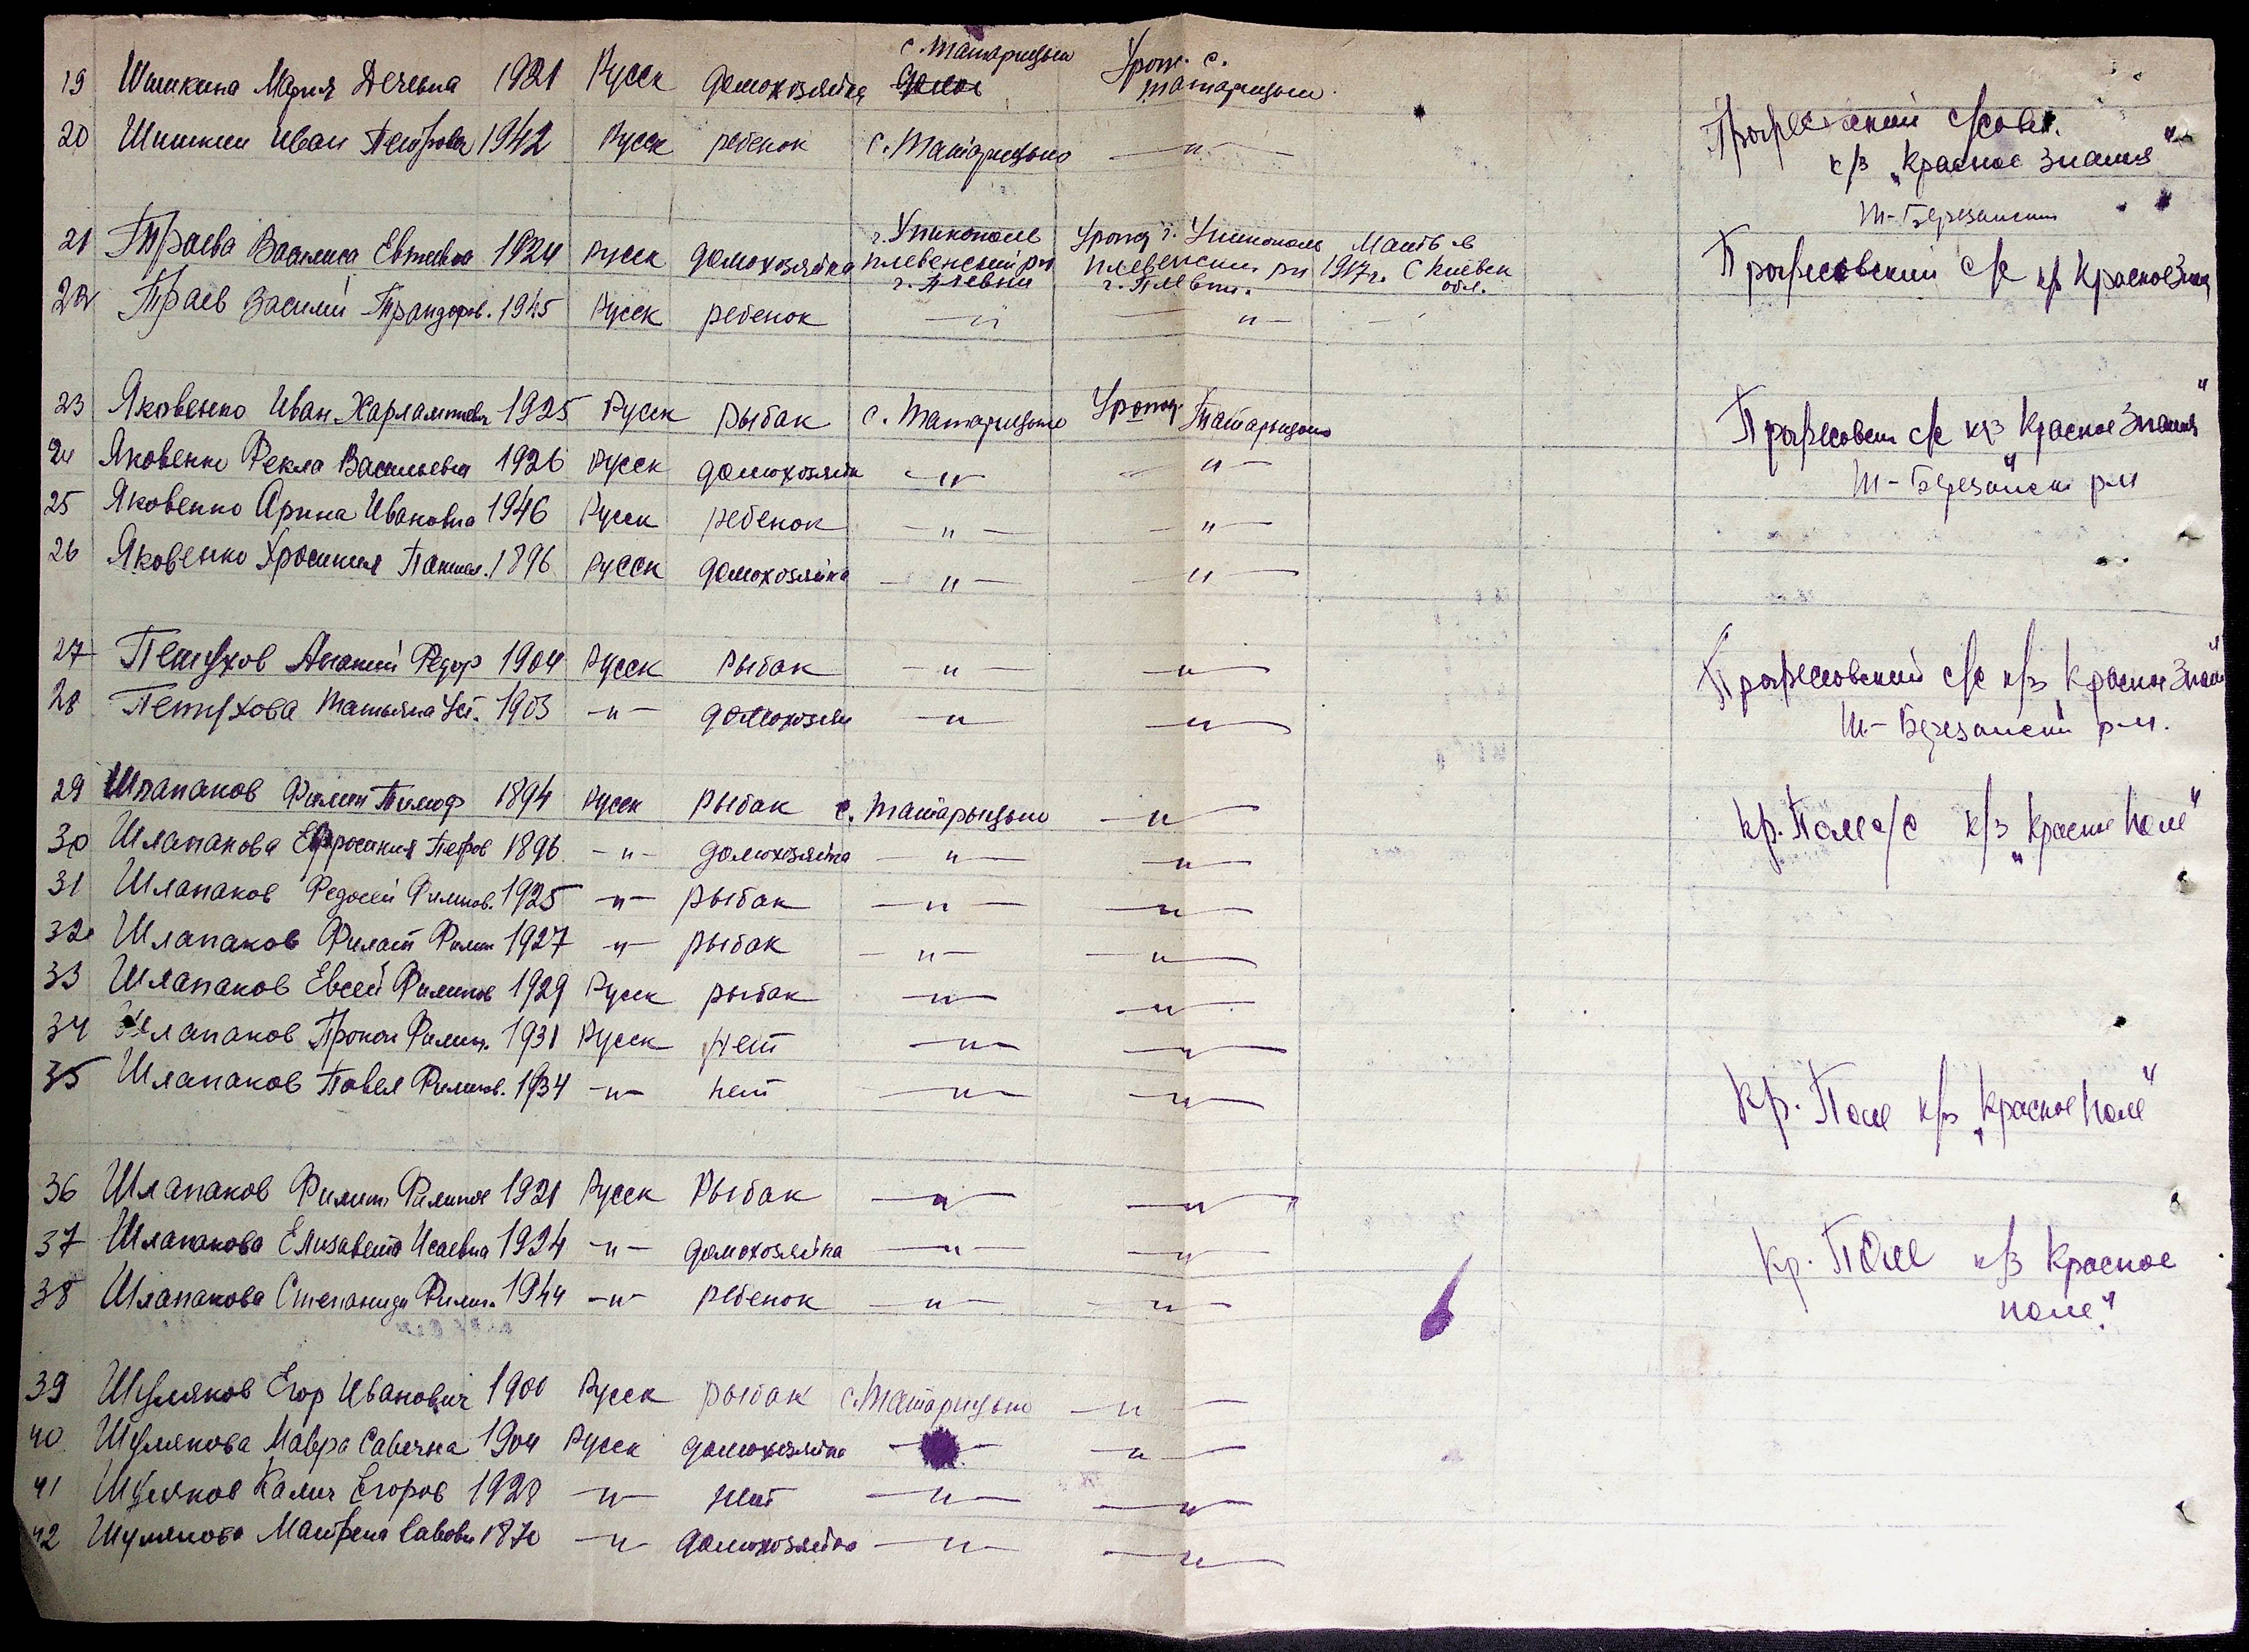 19 Шишкина Мария Дечевна 1921 Русск домохозяйка с. Татарицыи Урож. с. Татарицыи
20 Шишкин Иван Петрович 1942 Русск ребенок с. Татарицыно —"—
с/сов. к/з „Красное Знамя"
Ш-Березанский
21 Траева Василиса Евтеевна 1924 Русск домохозяйка г. Уникополь Плевенский рн г. Плевни Урож г. Уникополь Плевенски рн г. Плевни Мать в 1917 г. с Киевск обл.
Профессовский с/с к/з Красное Знам
22 Траев Василий Трандоров. 1945 Русск ребенок —"— —"—
23 Яковенко Иван Харлампиевич 1925 Русск рыбак с. Татарицыно Урожд. Татарицыно
Професовски с/с к/з Красное Знамя"
24 Яковенко Фекла Васильевна 1926 Русск домохозяйк —"— —"—
Ш-Березански р-н
25 Яковенко Арина Ивановна 1946 Русск ребенок —"— —"—
26 Яковенко Хросиния 1896 Русск домохозяйка —"— —"—
27 Петухов Ананий Федор 1904 Русск рыбак —"— —"—
Професовский с/с к/з Красное Знам"
28 Петухова Татьяна Уст. 1903 —"— домохозяй —"— —"—
Ш-Березанский р-н.
29 Шлапаков Филип Тимоф 1894 Русск рыбак с. Татарыцыно —"—
Кр. Поле с/с к/з „Красное Поле"
30 Шлапакова Ефросиния Петров 1896 —"— домохозяйка —"— —"—
31 Шлапаков Федосей Филипов. 1925 —"— рыбак —"— —"—
32 Шлапаков Филат Филип 1927 —"— рыбак —"— —"—
33 Шлапаков Евсей Филипов 1929 Русск рыбак —"— —"—
34 Шлапаков Прокоп Филип. 1931 Русск нет —"— —"—
35 Шлапаков Павел Филипов. 1934 —"— нет —"— —"—
Кр. Поле к/з „Красное поле"
36 Шлапаков Филип Филипов 1921 Русск Рыбак —"— —"—
37 Шлапакова Елизавета Исаевна 1924 —"— домохозяйка —"— —"—
Кр. Поле к/з Красное
38 Шлапакова Степанида Филип. 1944 —"— ребенок —"— —"—
поле"
39 Шуляков Егор Иванович 1900 Русск рыбак с. Татарицыно —"—
40 Шулякова Мавра Савечна 1904 Русск домохозяйка —"—
41 Шуляков Калич Егоров 1928 —"— нет —"— —"—
42 Шулякова Матрена Савовн 1870 —"— домохозяйка —"— —"—